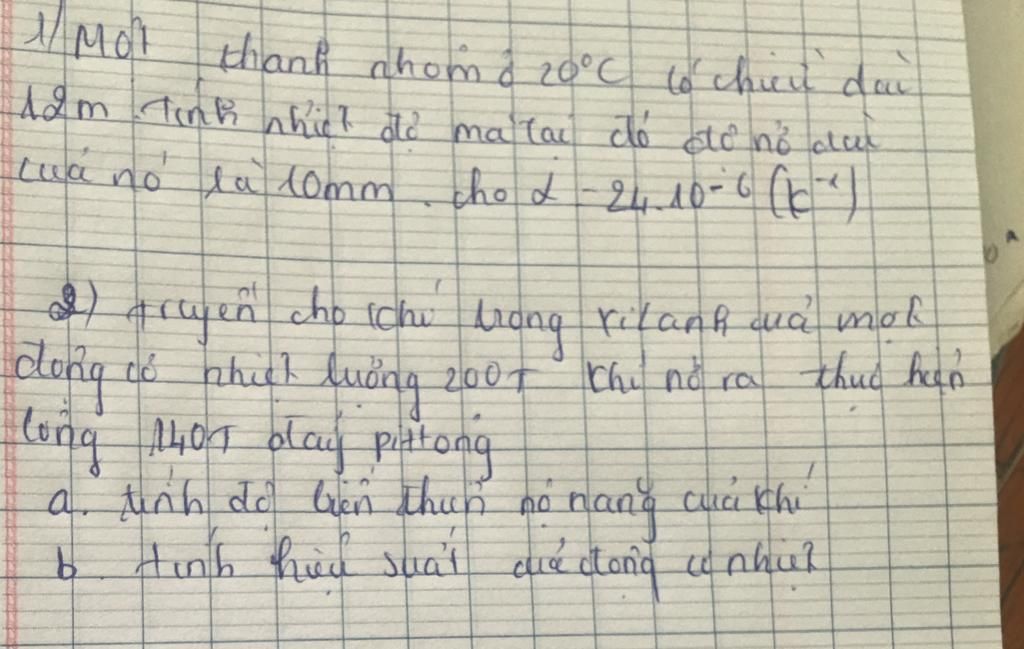 1) Một thanh nhôm ở 20°C có chiều dài
12m. Tính nhiệt độ mà tại đó độ nở dài
của nó là 10mm. cho α = 24.10⁻⁶ (k⁻¹)
2) truyền cho khí trong xilanh của một
động cơ nhiệt lượng 200J khí nở ra thực hiện
công 140J đẩy pittong
a. tính độ biến thiên nội năng của khí
b. tính hiệu suất của động cơ nhiệt